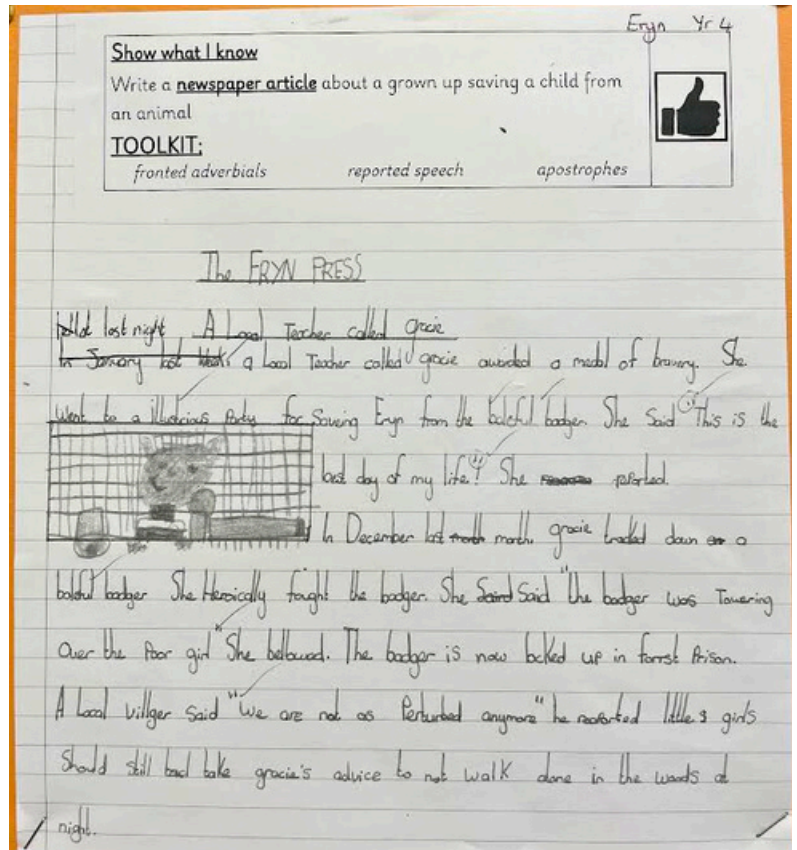 Eryn Yr 4
Show what I know
Write a newspaper article about a grown up saving a child from
an animal
TOOLKIT:
fronted adverbials reported speech apostrophes
The ERYN PRESS
last night A Local Teacher called gracie
In January last week a Local Teacher called gracie awarded a medal of bravery. She
Went to a illustrious Party for Saving Eryn from the baleful badger. She Said "This is the
best day of my life!" She reported.
In December last month month. gracie tracked down a
baleful badger She Heroically fought the badger. She Said "the badger was Towering
Over the Poor girl" She bellowed. The badger is now locked up in forrst Prison.
A Local villger Said "We are not as Perturbed anymore" he reoported little girls
Should still take gracie's advice to not walk alone in the woods at
night.